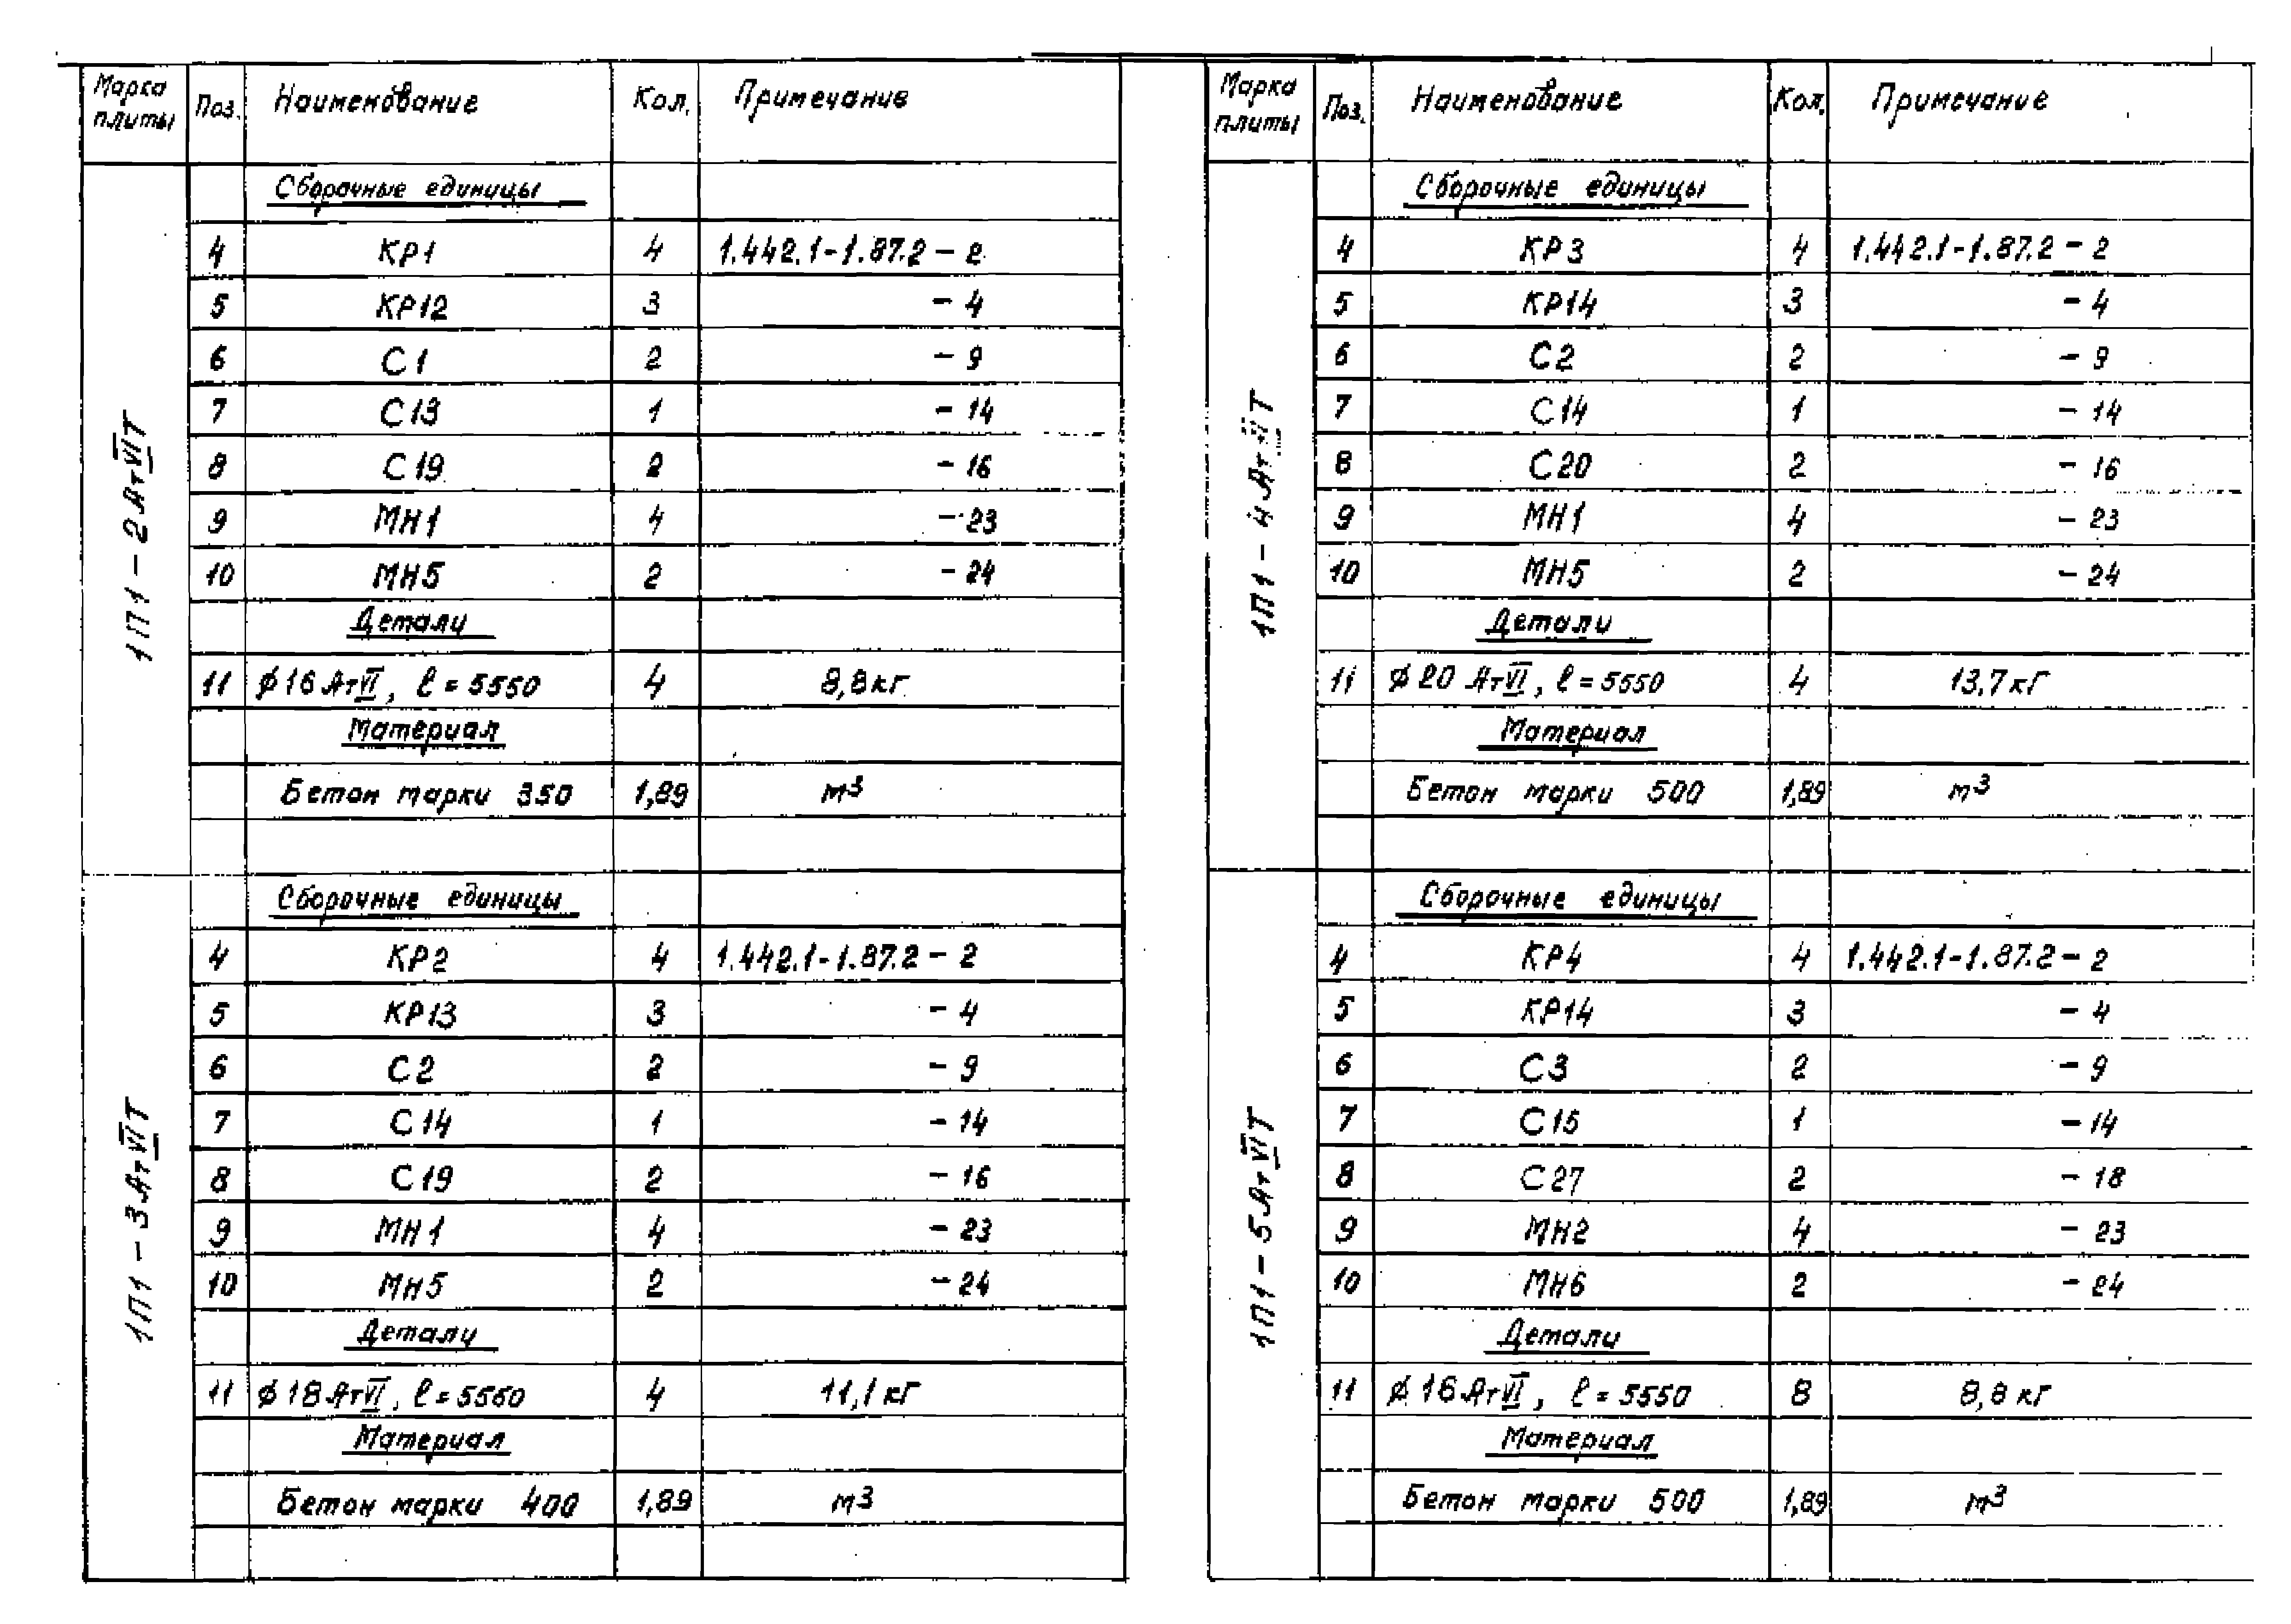 Марка плиты Поз. Наименование Кол. Примечание
1П1-2АтVIТ
Сборочные единицы
4 КР1 4 1.442.1-1.87.2-2
5 КР12 3 -4
6 С1 2 -9
7 С13 1 -14
8 С19 2 -16
9 МН1 4 -23
10 МН5 2 -24
Детали
11 ϕ16АтVI, ℓ=5550 4 8,8кг
Материал
Бетон марки 350 1,89 м³
1П1-3АтVIТ
Сборочные единицы
4 КР2 4 1.442.1-1.87.2-2
5 КР13 3 -4
6 С2 2 -9
7 С14 1 -14
8 С19 2 -16
9 МН1 4 -23
10 МН5 2 -24
Детали
11 ϕ18АтVI, ℓ=5550 4 11,1кг
Материал
Бетон марки 400 1,89 м³
Марка плиты Поз. Наименование Кол. Примечание
1П1-4АтVIТ
Сборочные единицы
4 КР3 4 1.442.1-1.87.2-2
5 КР14 3 -4
6 С2 2 -9
7 С14 1 -14
8 С20 2 -16
9 МН1 4 -23
10 МН5 2 -24
Детали
11 ϕ20 АтVI, ℓ=5550 4 13,7кг
Материал
Бетон марки 500 1,89 м³
1П1-5АтVIТ
Сборочные единицы
4 КР4 4 1.442.1-1.87.2-2
5 КР14 3 -4
6 С3 2 -9
7 С15 1 -14
8 С27 2 -18
9 МН2 4 -23
10 МН6 2 -24
Детали
11 ϕ16АтVI, ℓ=5550 8 8,8кг
Материал
Бетон марки 500 1,89 м³